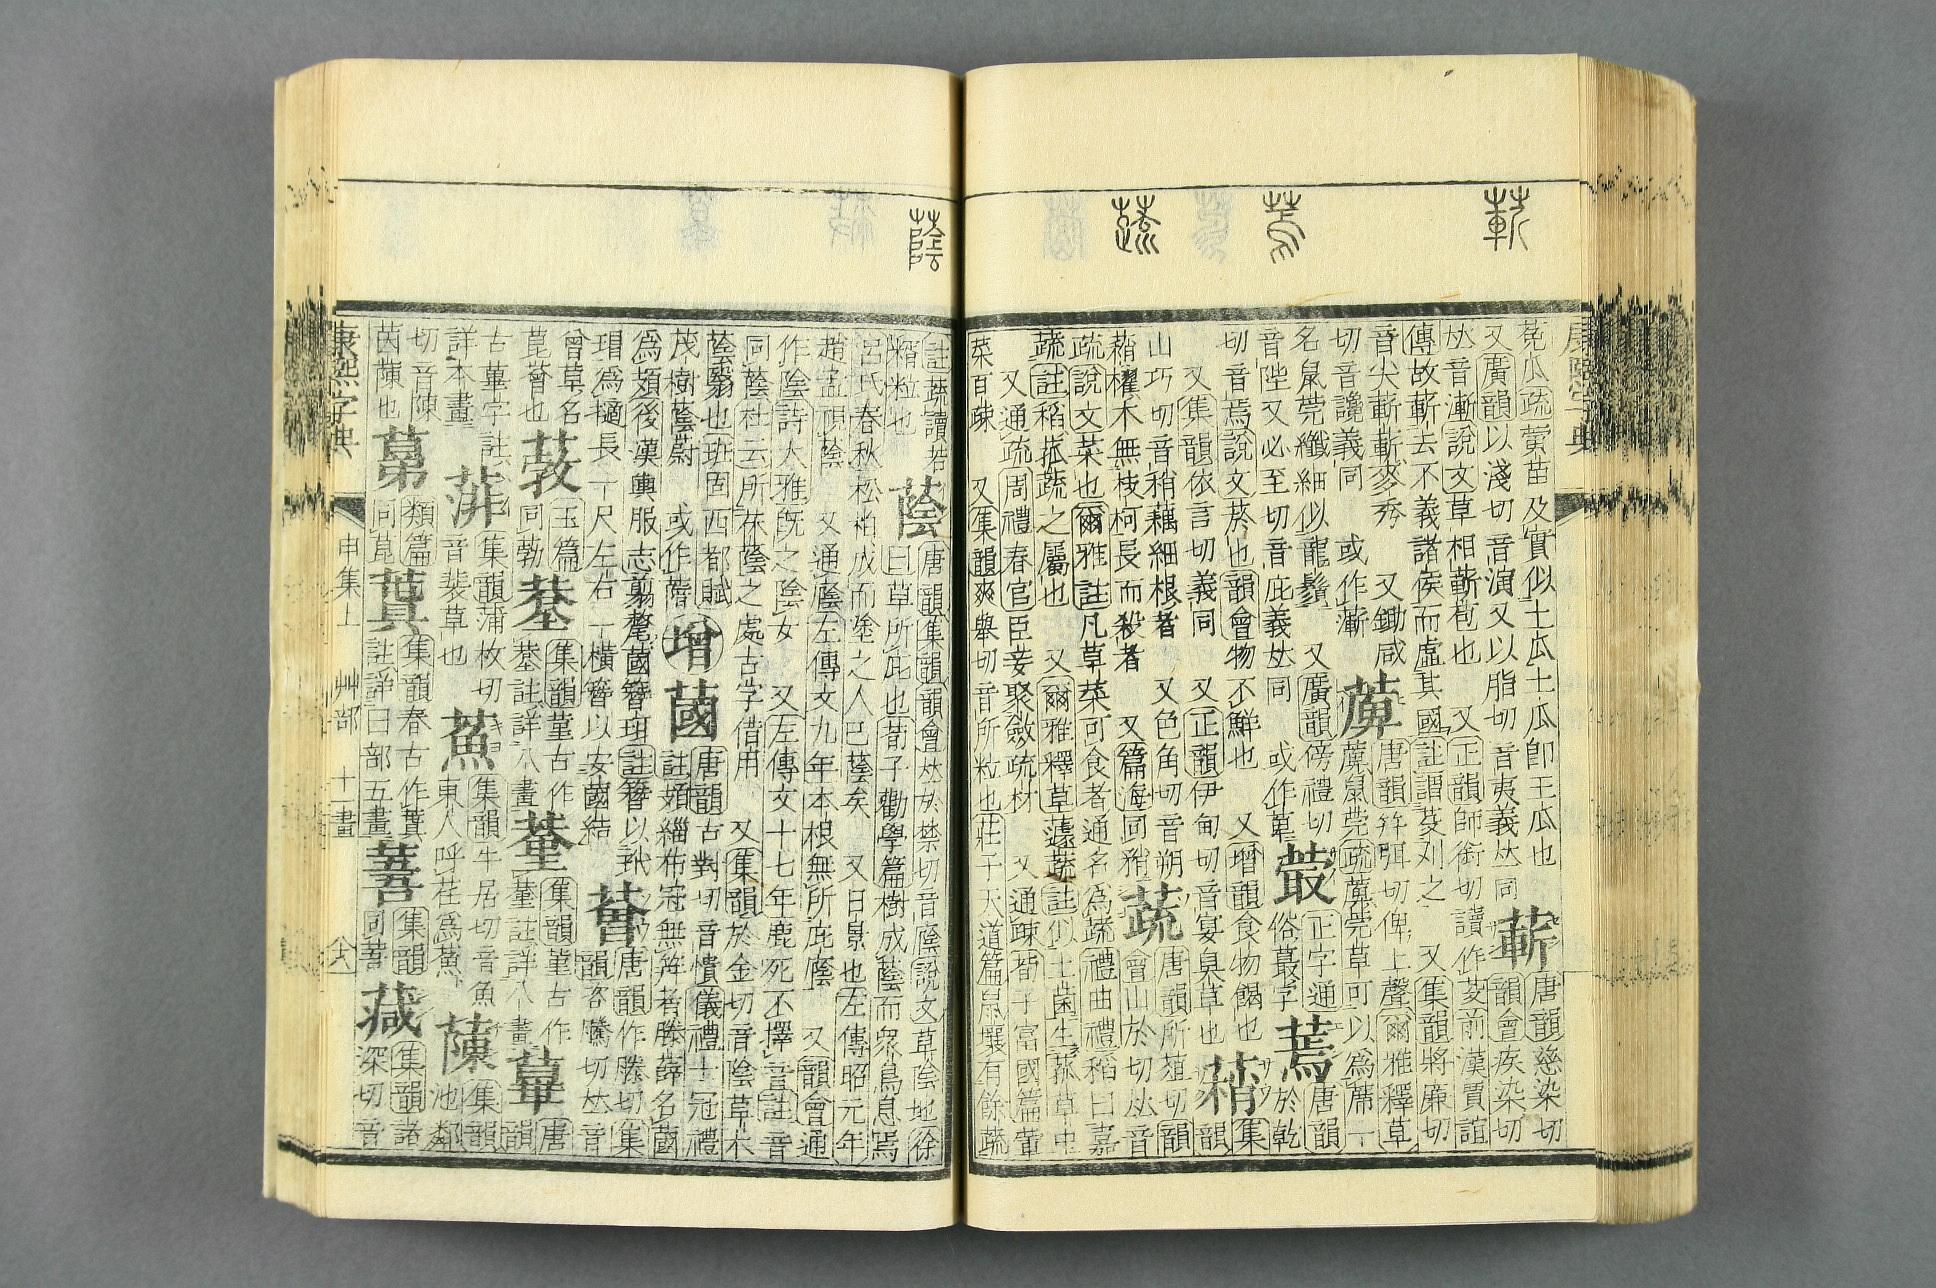 蔪
蔫
蔬
康熙字典
菟瓜疏䔰苗及實似土瓜土瓜卽王瓜也
又廣韻以淺切音演又以脂切音夷義𠀤同
蔪
唐韻慈染切
韻會疾染切
𠀤音漸說文草相蔪苞也 又正韻師銜切讀作芟前漢賈誼
傳故蔪去不義諸侯而虛其國註謂芟刈之 又集韻將廉切
音尖蔪蔪麥秀 又鋤咸
切音讒義同 或作漸
唐韻幷弭切俾上聲爾雅釋草
鼠莞疏莞草可以爲席一
名鼠莞纖細似龍鬚 又廣韻傍禮切
音陛又必至切音庇義𠀤同 或作萆
正字通
俗蕞字
蔫
唐韻
於乾
切音焉說文菸也韻會物不鮮也 又增韻食物餲也
又集韻依言切義同 又正韻伊甸切音宴臭草也
蕱
集
韻
山巧切音稍藕細根者 又色角切音朔
蕱櫂木無枝柯長而殺者 又篇海同稍
蔬
唐韻所葅切韻
會山於切𠀤音
疏說文菜也爾雅註凡草菜可食者通名爲蔬禮曲禮稻曰嘉
蔬註稻菰蔬之屬也 又爾雅釋草蘧蔬註似土菌生菰草中
又通疏周禮春官臣妾聚斂疏材 又通疎荀子富國篇葷
菜百疎 又集韻爽舉切音所粒也莊子天道篇鼠壤有餘蔬
蔭
註蔬讀若
糈粒也
蔭
唐韻集韻韻會𠀤於禁切音廕說文草陰地徐
曰草所庇也荀子勸學篇樹成蔭而衆鳥息焉
呂氏春秋松柏成而塗之人已蔭矣 又日景也左傳昭元年
趙孟視蔭 又通廕左傳文九年本根無所庇廕 又韻會通
作陰詩大雅旣之陰女 又左傳文十七年鹿死不擇音註音
同蔭杜云所茠蔭之處古字借用 又集韻於金切音陰草木
蔭翳也班固西都賦
茂樹蔭蔚 或作
增
蔮
唐韻古對切音憒儀禮士冠禮
註頍緇布冠無笄者滕薛名蔮
爲頍後漢輿服志翦氂蔮簪珥註簪以玳
瑁爲擿長一尺左右一橫簪以安蔮結
唐韻作滕切集
韻咨騰切𠀤音
曾草名
也
玉篇
同
集韻堇古作
註詳八畫
集韻堇古作
註詳八畫
唐
韻
古葷字註
詳本畫
集韻蒲枚切
音裴草也
集韻牛居切音魚
東人呼荏爲
蔯
集韻
池鄰
切音陳
茵蔯也
類篇
同莔
集韻春古作
註詳日部五畫
集韻
同菩
葴
集韻諸
深切音
康熙字典
申集上
艸部
十一畫